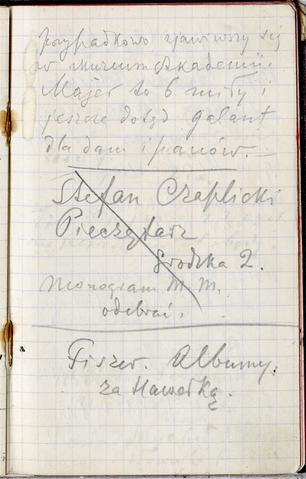 przypadkowo zjawiwszy się
w Muzeum Akademii.
Majer to b miły i
jeszcze dotąd galant
dla dam i panów. —
Stefan Czaplicki
Pieczętarz
Grodzka 2.
Monogram M. M.
odebrać.
Fiszer. Albumy.
za Hawełką.